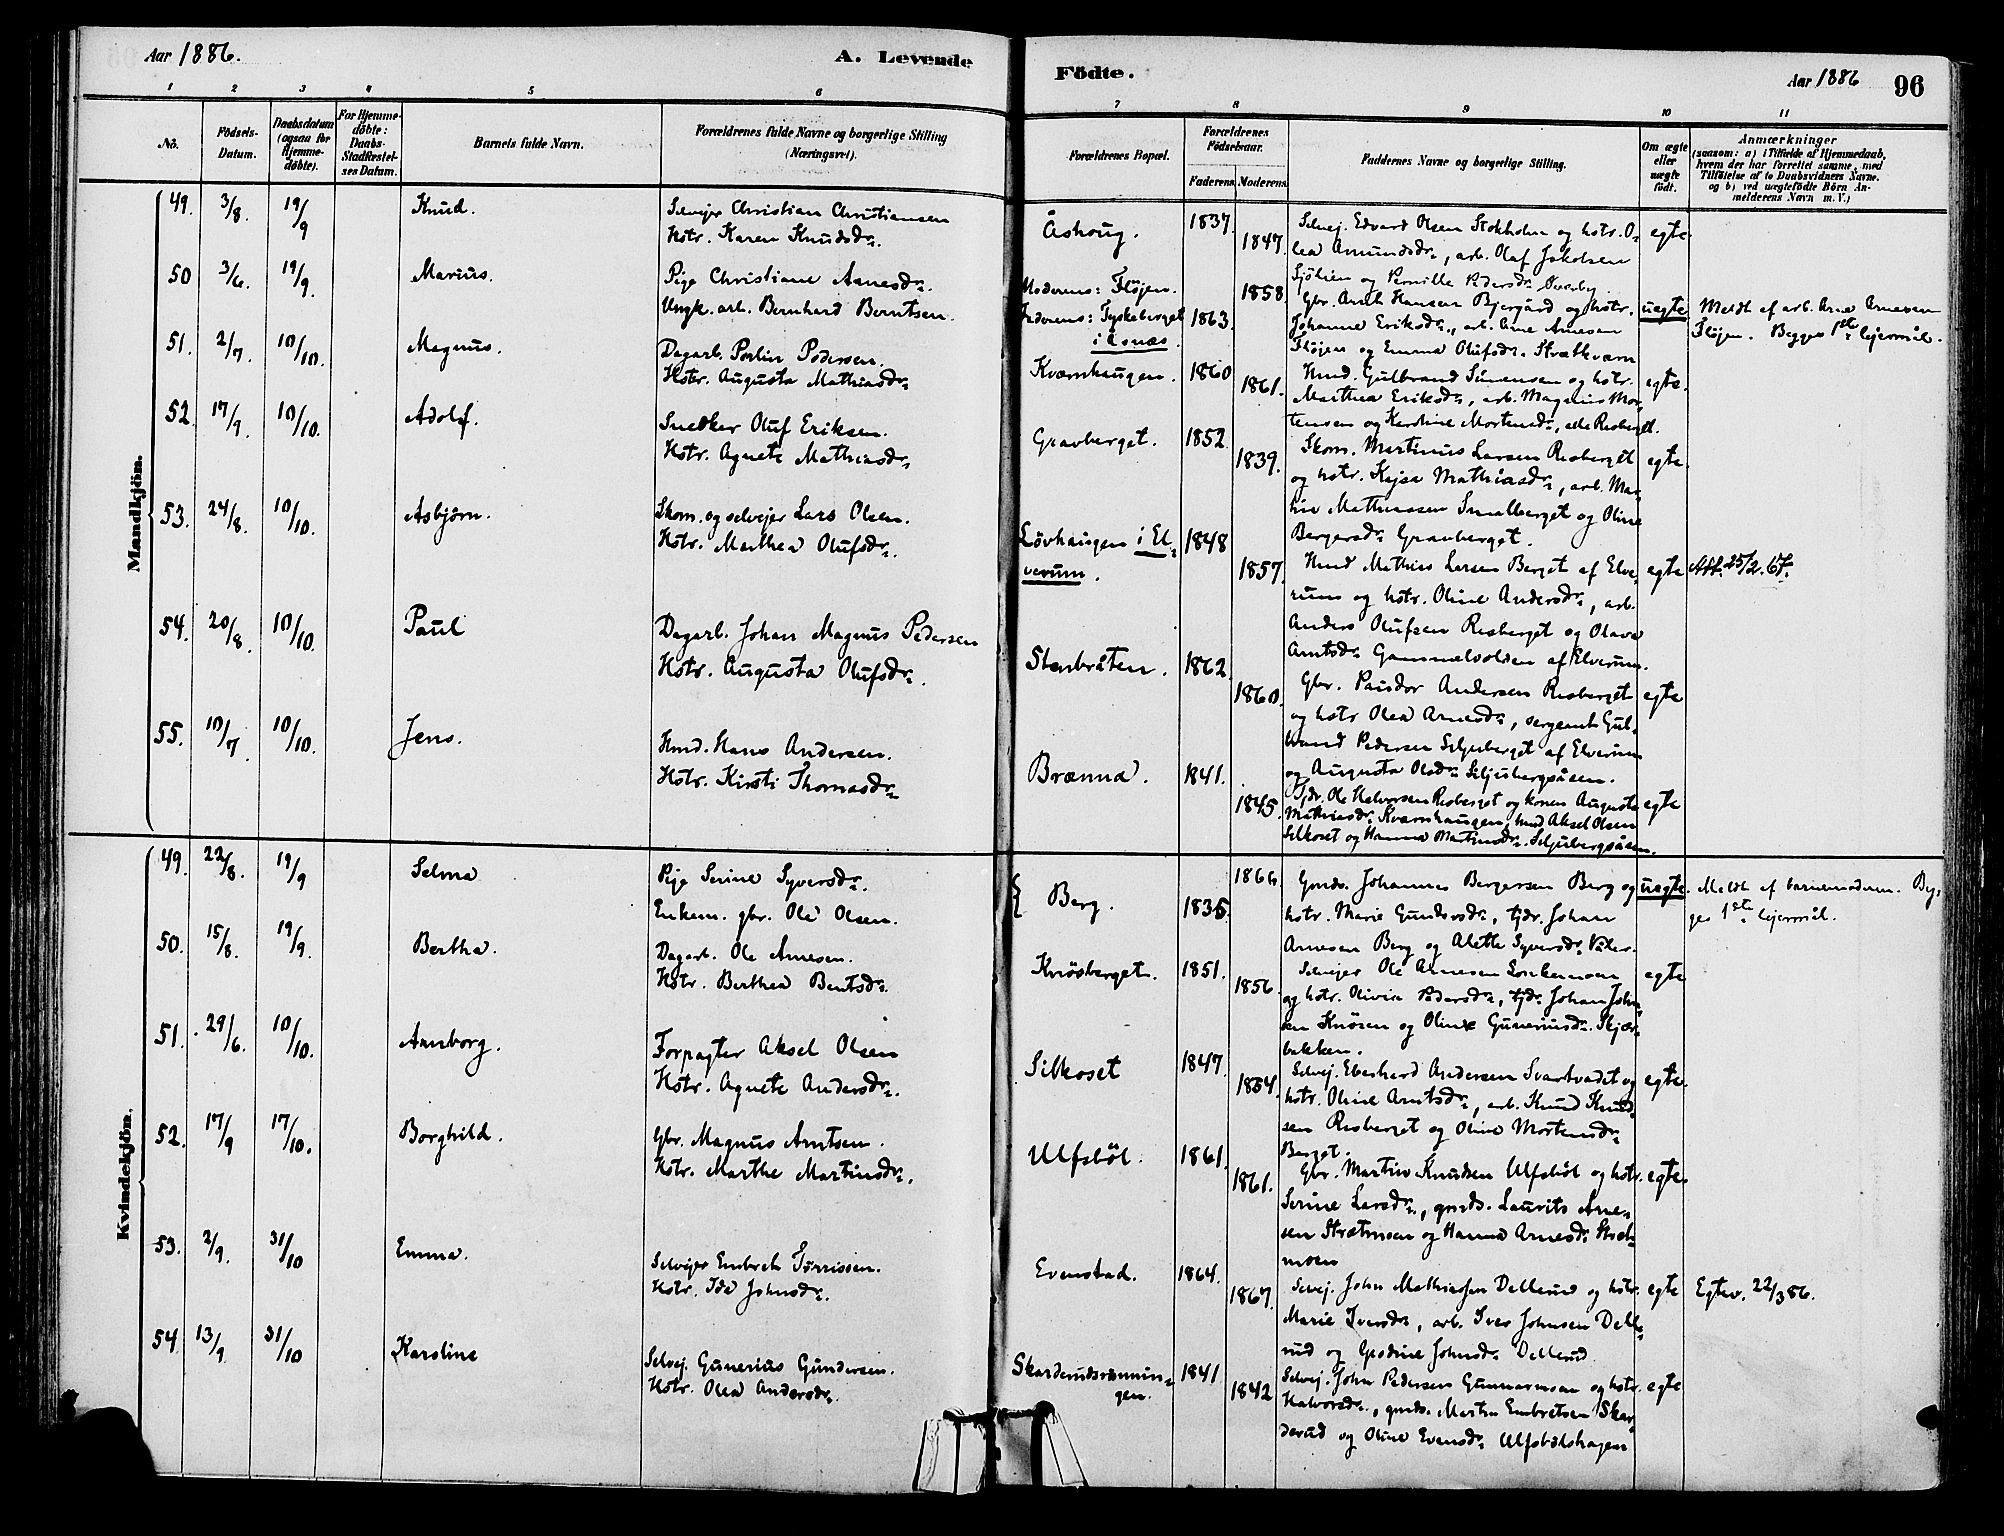 Aar 1886. A. Levende Födte. Aar 1886 96
1 2 3 4 5 6 7 8 9 10 11
No. Födsels-Datum. Daabsdatum (ogsaa for Hjemmedöbte). For Hjemmedöbte: Daabs-Stadfæstelses Datum. Barnets fulde Navn. Forældrenes fulde Navne og borgerlige Stilling (Næringsvei). Forældrenes Bopæl. Forældrenes Födselsaar. Faderens. Moderens. Faddernes Navne og borgerlige Stilling. Om ægte eller uægte födt. Anmærkninger (saasom: a) i Tilfælde af Hjemmedaab, hvem der har forrettet samme, med Tilföielse af to Daabsvidners Navne. og b) ved uægtefödte Börn Anmelderens Navn m. V.)
Mandkjön.
49. 3/8. 19/9 Knud. Selvejer Christian Christiansen
Hstr. Karen Knudsdr. Åshoug. 1837. 1847. egte.
Selvej. Edvard Olsen Stokholm og hstr. O-
lea Amundsdr., arb. Olaf Jakobsen
Sjölien og Pernille Pedersdr. Överby.
50 3/6. 19/9. Marius. Pige Christiane Arnesdr.
Ungk. arb. Bernhard Berntsen. Moderens: Flöjen. 1858.
Faderens: Tyskeberget i Åsnæs. 1863. uegte
Gbr. Arnt Hansen Bjergård og hstr.
Johanne Eriksdr., arb. Arne Arnesen
Flöjen og Emma Olufsdr. Strætkværn
Meldt af arb. Arne Arnesen
Flöjen. Begges 1ste lejermål.
51. 2/7. 10/10. Magnus. Dagarb. Parlin Pedersen.
Hstr. Augusta Mathiasdr. Kværnhaugen. 1860 1861. egte.
Hmd. Gulbrand Simensen og hstr.
Marthea Eriksdr., arb. Magnus Mor-
tensen og Karoline Mortensdr., alle Risberget.
52. 17/9. 10/10. Adolf. Snedker Oluf Eriksen.
Hstr. Agnete Mathiasdr. Gravberget. 1852. 1839. egte.
Skom. Martinus Larsen Risberget
og hstr. Kajsa Mathiasdr., arb. Mar-
tin Mathiassen Smalberget og Oline
Bergersdr. Gravberget.
53. 24/8. 10/10. Asbjørn. Skom. og selvejer Lars Olsen.
Hstr. Marthea Olufsdr. Lövhaugen i El-
verum. 1848 1857. egte Att. 25/2. 67.
Hmd Mathias Larsen Berget af Elve-
rum og hstr. Oline Andersdr., arb.
Anders Olufsen Risberget og Olava
Arntsdr. Gammelvolden af Elverum.
54. 20/8. 10/10 Paul Dagarb. Johan Magnus Pedersen
Hstr. Augusta Olufsdr. Stenbråten. 1862. 1860. egte
Gbr. Andersen Risberget
og hstr Olea Arnesdr., sergeant Gul-
brand Pedersen Siljuberget af Elverum
og Augusta Olsdr. Siljubergsåsen.
55. 10/7. 10/10. Jens. Hmd. Hans Andersen.
Hstr. Kirsti Thomasdr. Brænna. 1841. 1845. egte
Tjdr. Ole Halvorsen Risberget og konen Augusta
Mathiasdr. Kværnhaugen, hmd Aksel Olsen
Silkoset og Hanna Martinsdr. Siljubergsåsen.
Kvindekjön.
49. 22/8. 19/9 Selma Pige Serine Syversdr.
Enkem. gbr. Ole Olsen. Berg. 1866. 1835. uegte.
Gmds. Johannes Bergersen Berg og
hstr. Marie Gundersdr., tjdr. Johan
Arnesen Berg og Alette Syversdr. Våler.
Meldt af barnemoderen. Beg-
ges 1ste lejermål.
50. 15/8. 19/9. Bertha. Dagarb. Ole Arnesen.
Hstr. Berthea Berntsdr. Knösberget. 1851. 1856. egte
Selvejer Ole Arnesen
og hstr. Olivia Pedersdr., tjdr. Johan John-
sen Knösen og Oline Guneriusdr. Skjær-
bakken.
51. 29/6. 10/10. Arnborg. Forpagter Aksel Olsen
Hstr. Agnete Andersdr. Silkoset 1847. 1854. egte.
Selvej. Eberhard Andersen Svartvadet og
hstr. Oline Arntsdr., arb. Knud Knud-
sen Risberget og Oline Mortensdr.
Berget.
52. 17/9 17/10. Borghild. Gbr. Magnus Arntsen.
Hstr. Marthe Martinsdr. Ulfsböl. 1861. 1861. egte.
Gbr. Martin Knudsen Ulfsböl og hstr.
Serine Larsdr., gmds. Laurits Arne-
sen Strætmoen og Hanna Arnesdr. Stræt-
moen
53. 2/9. 31/10 Emma. Selvejer Embret Tørrissen.
Hstr. Ida Johnsdr. Evenstad. 1864. 1867. egte Egtev. 22/3 86.
Selvej. John Mathiassen Dellerud og hstr.
Marie Iversdr., arb. Iver Johnsen Delle-
rud og Johnsdr. Dellerud.
54. 13/9. 31/10 Karoline Selvej. Gunerius Gundersen.
Hstr. Olea Andersdr. Skarderudsrønnin-
gen. 1841. 1842 egte
Selvej. John Pedersen Gunnarmoen og hstr.
Halvorsdr., gmds. Martin Embretsen Skar-
derud og Oline Evensdr. Ulfsbölshagen